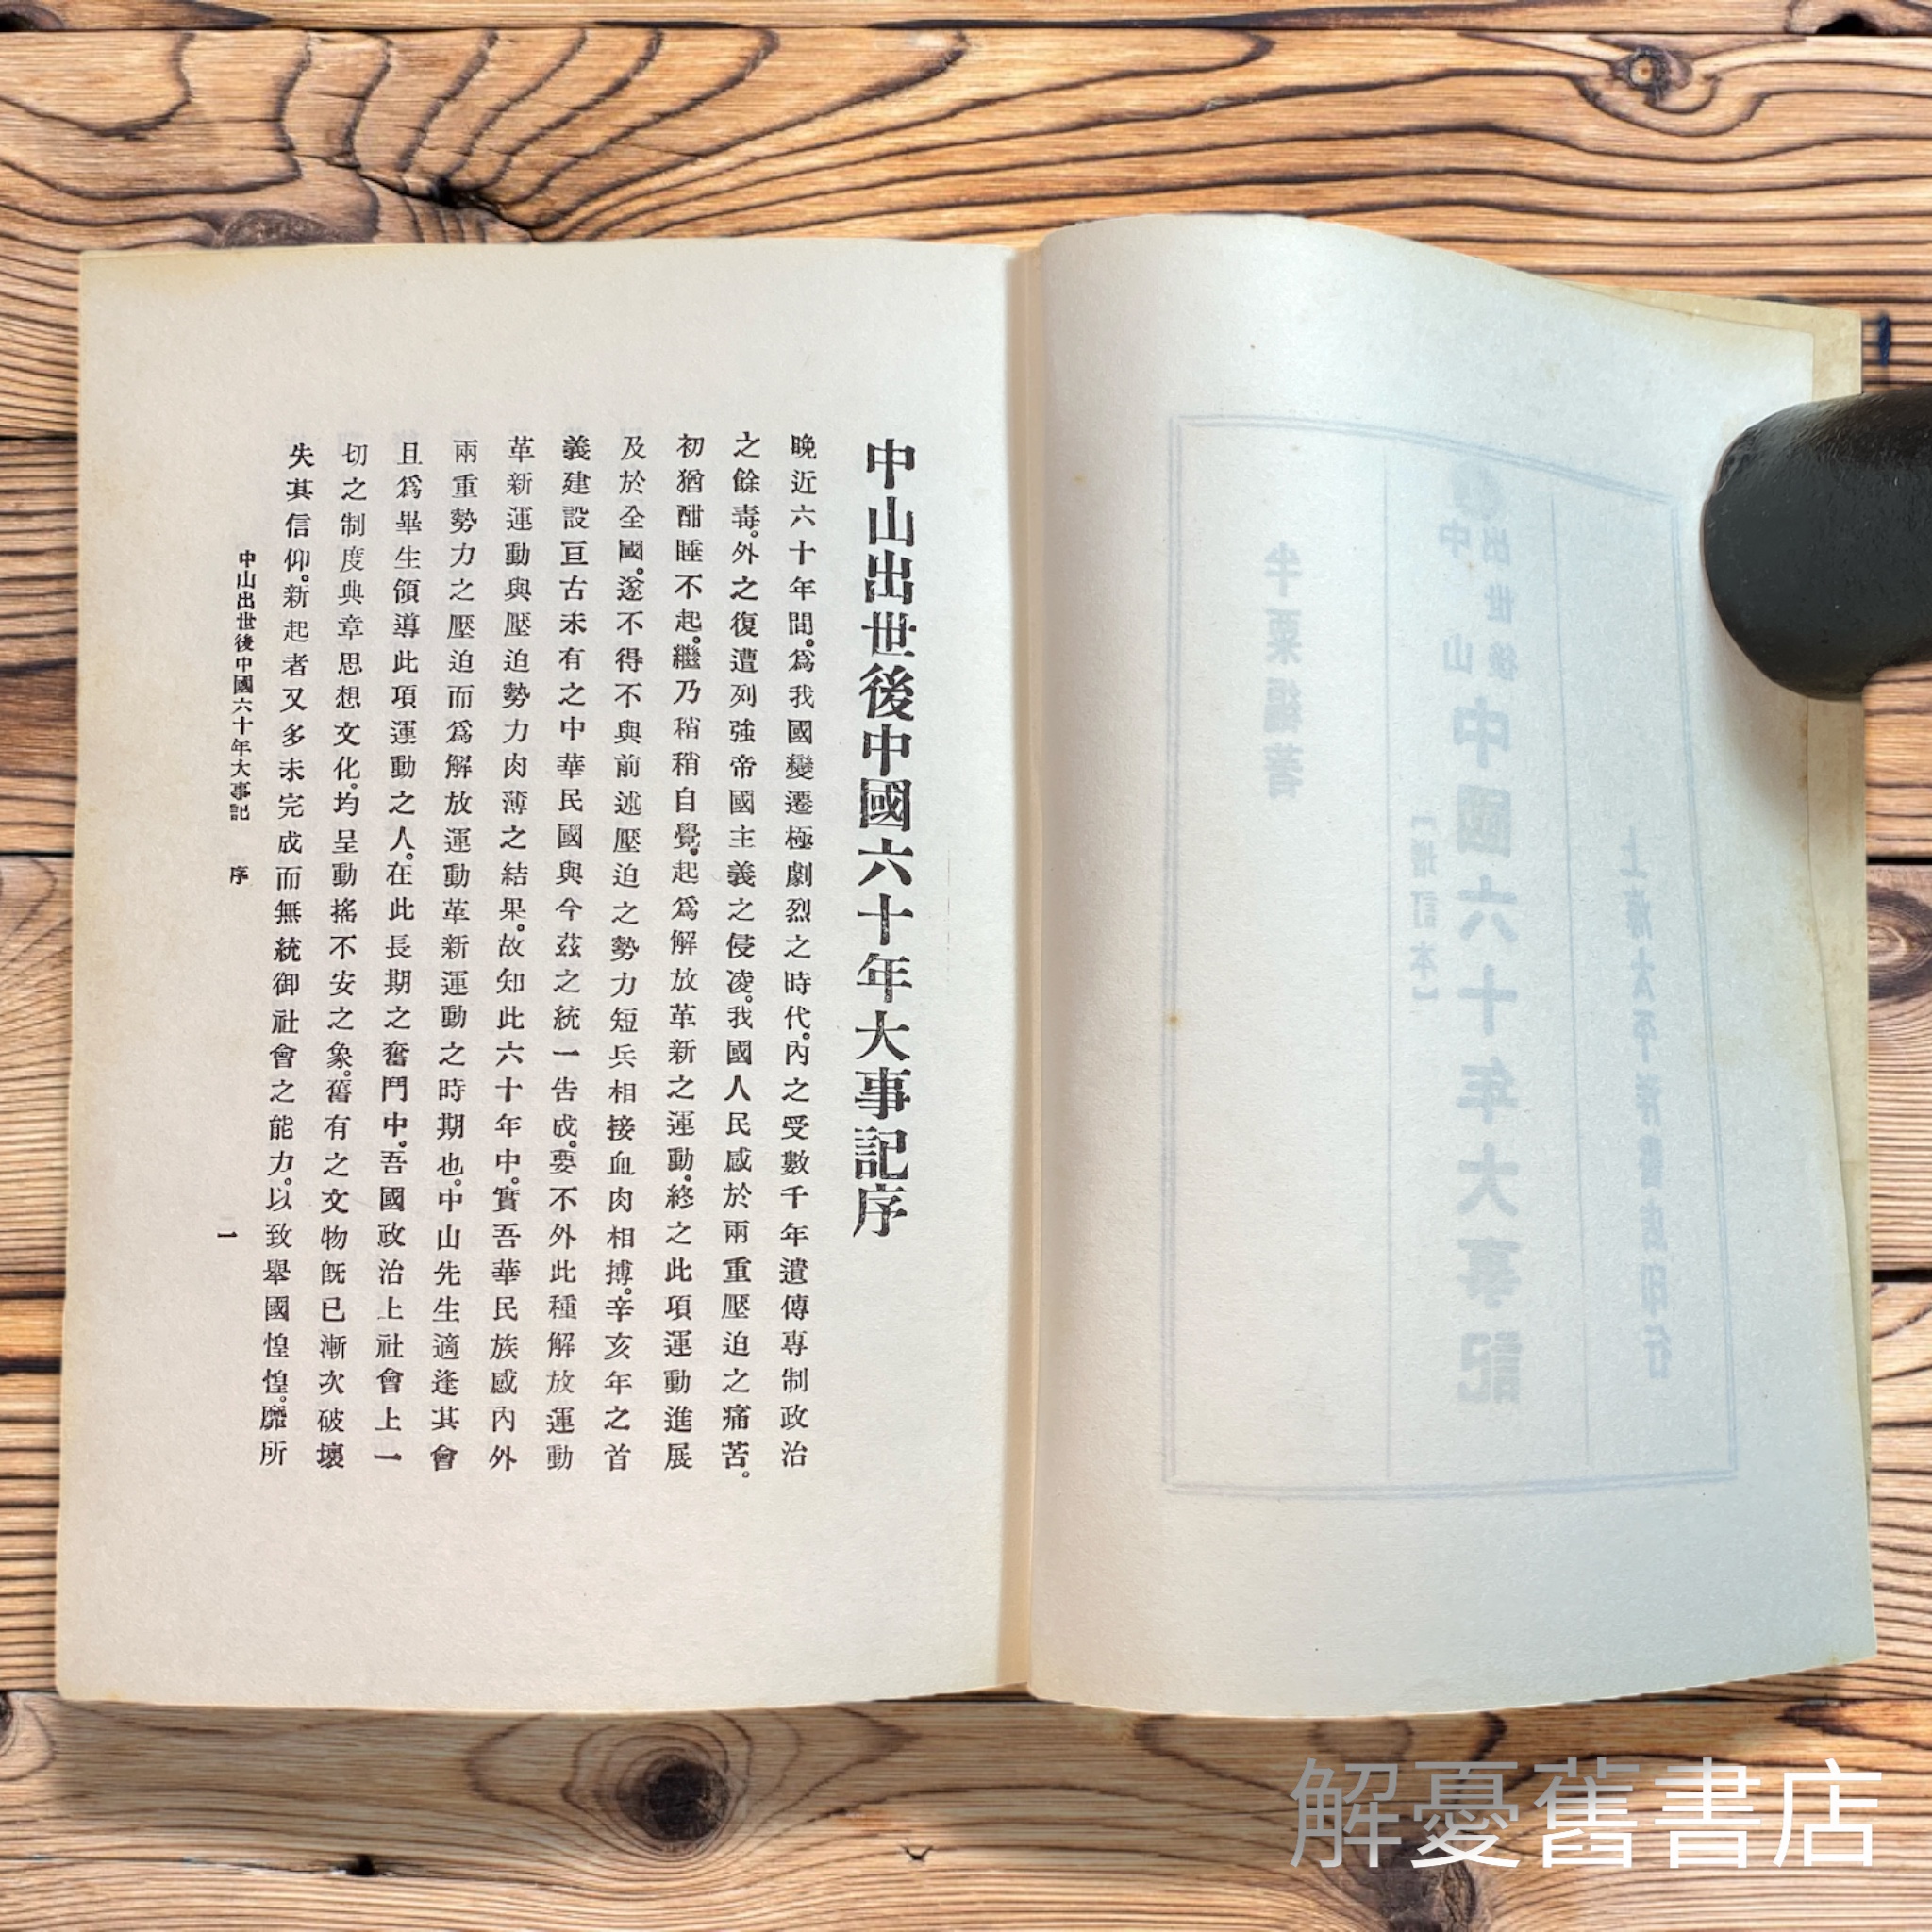 上海太平洋書店印行
中山
出世後
中國六十年大事記
【增訂本】
半粟編著
中山出世後中國六十年大事記序
晚近六十年間。爲我國變遷極劇烈之時代。內之受數千年遺傳專制政治
之餘毒。外之復遭列強帝國主義之侵凌。我國人民感於兩重壓迫之痛苦。
初猶酣睡不起。繼乃稍稍自覺。起爲解放革新之運動。終之此項運動進展
及於全國。遂不得不與前述壓迫之勢力短兵相接血肉相搏。辛亥年之首
義建設亘古未有之中華民國與今茲之統一告成。要不外此種解放運動
革新運動與壓迫勢力肉薄之結果。故知此六十年中。實吾華民族感內外
兩重勢力之壓迫而爲解放運動革新運動之時期也。中山先生適逢其會
且爲畢生領導此項運動之人。在此長期之奮鬥中。吾國政治上社會上一
切之制度典章思想文化。均呈動搖不安之象。舊有之文物旣已漸次破壞
失其信仰。新起者又多未完成而無統御社會之能力。以致舉國惶惶。靡所
中山出世後中國六十年大事記 序
一
解憂舊書店